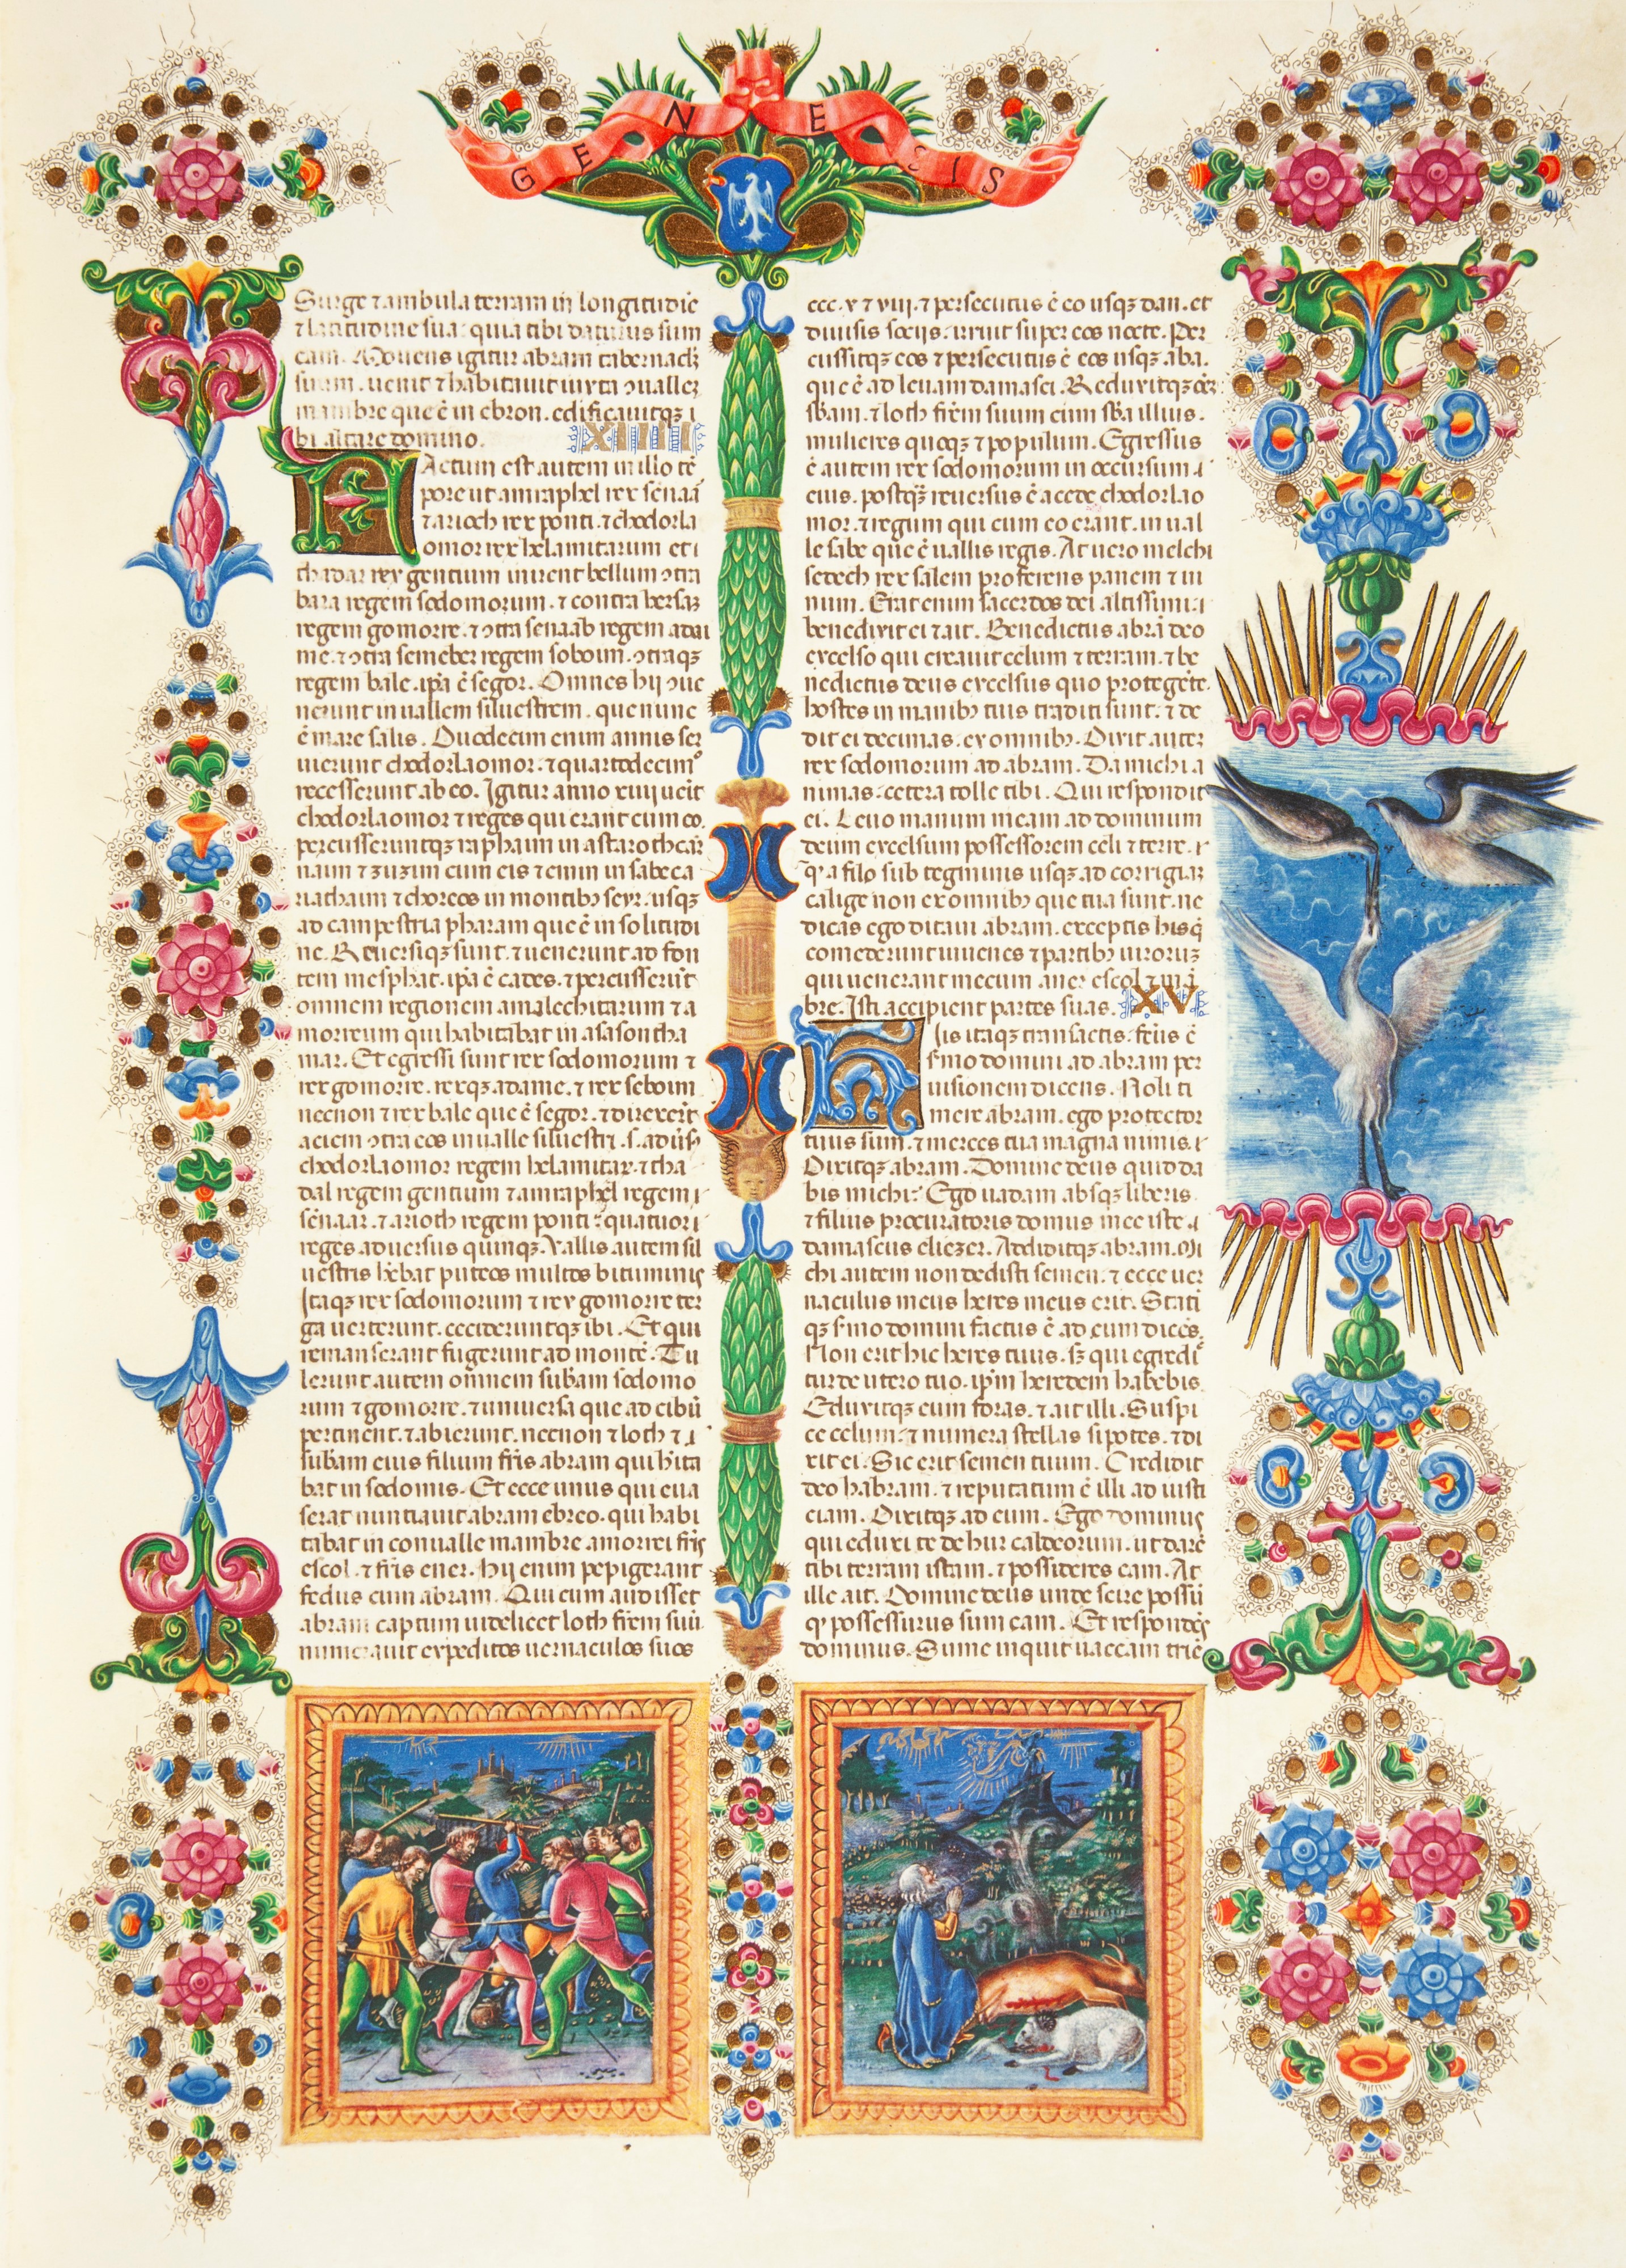 GENESIS
Surge ⁊ ambula terram in longitudīe
⁊ latitudine sua: quia tibi daturus sum
eam. Mouens igitur abram tabernacl̄ꝫ
suum. uenit ⁊ habitauit iuxta ꝯualleꝫ
mambre que ē in ebron. edificauitqꝫ i
bi altare domino.
XIIII
Factum est autem in illo tē
pore ut amraphel rex sēnaā
⁊ arioch rex ponti. ⁊ chodorla
omor rex helamitarum et
thadar rex gentium inirent bellum ꝯtra
bara regem sodomorum. ⁊ contra bersaꝫ
regem gomorre. ⁊ ꝯtra senaab regem adai
me. ⁊ ꝯtra semeber regem soboim. ꝯtraqꝫ
regem bale. ip̄a ē segor. Omnes hij ꝯue
nerunt in uallem siluestrem. que nunc
ē mare salis. Duodecim enim annis ser
uierunt chodorlaomor. ⁊ quartodecim°
recesserunt ab eo. Igitur anno xiiij ueīt
chodorlaomor ⁊ reges qui erant cum eo.
percusseruntqꝫ raphaim in astarothcar
naim ⁊ zuzim cum eis ⁊ emin in sabe ca
riathaim ⁊ choreos in montibꝫ seyr. usqꝫ
ad campestria pharam que ē in solitudi
ne. Reuersiqꝫ sunt. ⁊ uenerunt ad fon
tem mesphat. ip̄a ē cades. ⁊ percusserūt
omnem regionem amalechitarum ⁊ a
morreum qui habitabat in asasontha
mar. Et egressi sunt rex sodomorum ⁊
rex gomorre. rexqꝫ adame. ⁊ rex seboim
necnon ⁊ rex bale que ē segor. ⁊ direxerūt
aciem ꝯtra eos in ualle siluestri. s. aduīsꝰ
chodorlaomor regem helamitaꝝ. ⁊ tha
dal regem gentium ⁊ amraphel regem
sēnaar. ⁊ arioth regem ponti: quatuor
reges aduersus quinqꝫ. Vallis autem sil
uestris h̄ebat puteos multos bituminis
Itaqꝫ rex sodomorum ⁊ rex gomorre ter
ga uerterunt. cecideruntqꝫ ibi. Et qui
remanserant fugerunt ad montē. Tu
lerunt autem omnem sūbam sodomo
rum ⁊ gomorre. ⁊ uniuersa que ad cibū
pertinent. ⁊ abierunt. necnon ⁊ loth ⁊
sūbam eius filium fr̄is abram qui h̄ita
bat in sodomis. Et ecce unus qui eua
serat nuntiauit abram ebreo. qui habi
tabat in conualle mambre amorrei fr̄is
escol. ⁊ fr̄is ener. hij enim pepigerant
fedus cum abram. Qui cum audisset
abram captum uidelicet loth fr̄em suū.
numerauit expeditos uernaculos suos
ccc. x ⁊ viii. ⁊ persecutus ē eo usqꝫ dan. et
diuisis socijs. irruit super eos nocte. Per
cussitqꝫ eos ⁊ persecutus ē eos usqꝫ aba.
que ē ad leuam damasci. Reduxitqꝫ oēꝫ
sb̄am. ⁊ loth fr̄em suum cum sb̄a illius.
mulieres quoqꝫ ⁊ populum. Egressus
ē autem rex sodomorum in occursum
eius. postqꝫ reuersus ē a cede chodorlao
mor. ⁊ regum qui cum eo erant. in ual
le sabe que ē uallis regis. At uero melchi
sedech rex salem proferens panem ⁊ ui
num. Erat enim sacerdos dei altissimi.
benedixit ei ⁊ ait. Benedictus abrā deo
excelso qui creauit celum ⁊ terram. ⁊ be
nedictus deus excelsus quo protegēte.
hostes in manibꝫ tuis traditi sunt. ⁊ de
dit ei decimas. ex omnibꝫ. Dixit autez
rex sodomorum ad abram. Da michi a
nimas. cetera tolle tibi. Qui respondit
ei. Leuo manum meam ad dominum
deum excelsum possessorem celi ⁊ terre.
qꝫ a filo sub tegminis usqꝫ ad corrigiaꝫ
calige non ex omnibꝫ que tua sunt. ne
dicas ego ditaui abram. exceptis hisq̄
comederunt iuuenes ⁊ partibꝫ uiroruꝫ
qui uenerant mecum. aner escol ⁊ mā
bre. Isti accipient partes suas.
XV
His itaqꝫ transactis. fct̄us ē
s̄mo domini ad abram per
uisionem dicens. Noli ti
mere abram. ego protector
tuus sum. ⁊ merces tua magna nimis.
Dixitqꝫ abram. Domine deus quid da
bis michi: Ego uadam absqꝫ liberis.
⁊ filius procuratoris domus mee iste
damascus eliezer. Addiditqꝫ abram. Mi
chi autem non dedisti semen. ⁊ ecce uer
naculus meus heres meus erit. Stati
qꝫ s̄mo domini factus ē ad eum dicēs.
Non erit hic heres tuus. sꝫ qui egredi
tur de utero tuo. ip̄m heredem habebis.
Eduxitqꝫ eum foras. ⁊ ait illi. Suspi
ce celum: ⁊ numera stellas si potes. ⁊ di
xit ei. Sic erit semen tuum. Credidit
deo habram. ⁊ reputatum ē illi ad iusti
ciam. Dixitqꝫ ad eum. Ego dominus
qui eduxi te de hur caldeorum. ut darē
tibi terram istam. ⁊ possideres eam. At
ille ait. Domine deus unde scire possū
qꝫ possessurus sum eam. Et respondēs
dominus. Sume inquit uaccam triē